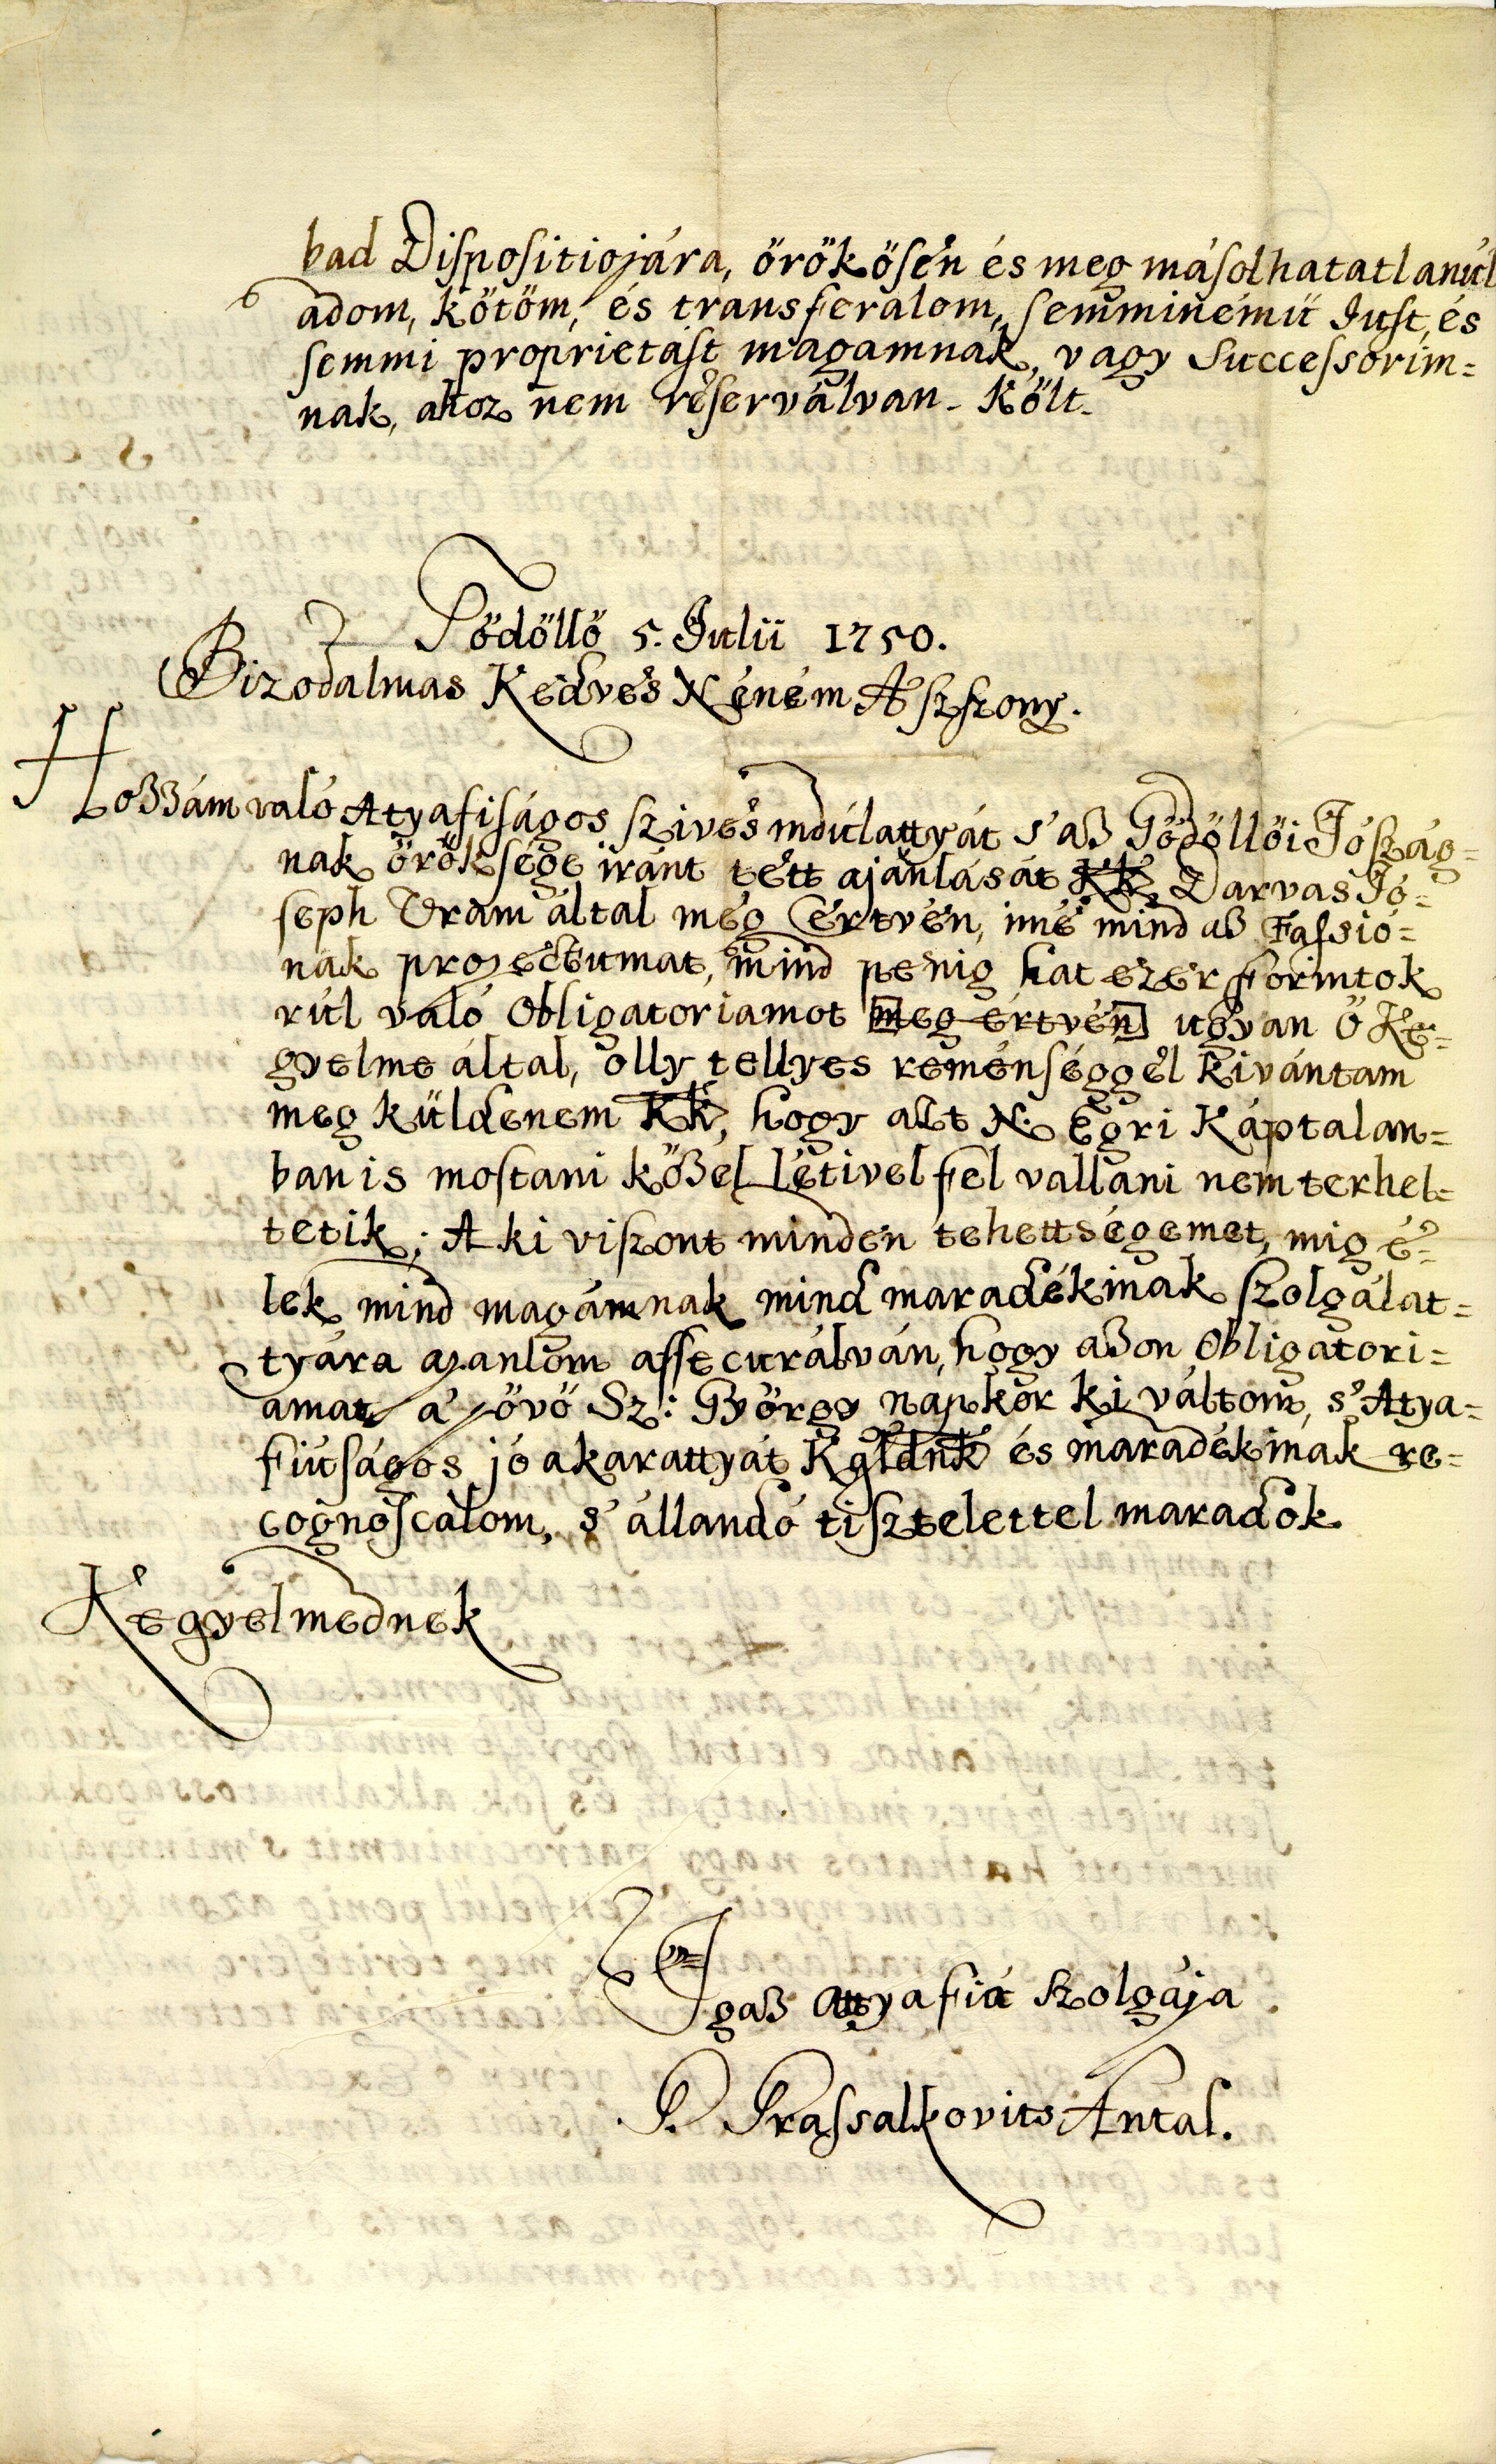 bad Dispositiojára, örökösén és meg másolhatatlanúl
adom, kötöm, és transferálom, semminémü Just, és
semmi proprietást magamnak, vagy Successorim=
nak, ahoz nem réserválvan. Költ.
Gödöllö 5. Julii 1750.
Bizodalmas Kedves Néném Aszszony.
Hozzám való Atyafiságos szives indúlattyát s' az Gödöllöi Jószág=
nak öröksége iránt tett ajánlását KK, Darvas Jó=
seph Uram által meg értvén, imé mind az Fassió=
nak projectumat, mind penig hat ezer forintok
rúl való Obligatoriamot meg értvén ugyan ö Ke=
gyelme által, olly tellyes reménséggel kivántam
meg küldenem KK, hogy azt N. Egri Káptalan=
ban is mostani közel létivel fel vallani nem terhel=
tetik; A ki viszont minden tehettségemet, mig é=
lek mind magámnak mind maradékinak szolgálat=
tyára ajanlom assecurálván, hogy azon Obligatori=
amat a' jövö Sz: György napkor ki váltom, s' Atya=
fiúságos jó akarattyát Kgldnk és maradékinak re=
cognoscálom, s' állandó tisztelettel maradok
Kegyelmednek
Igaz attyafiá szolgája
G. Grassalkovits Antal.